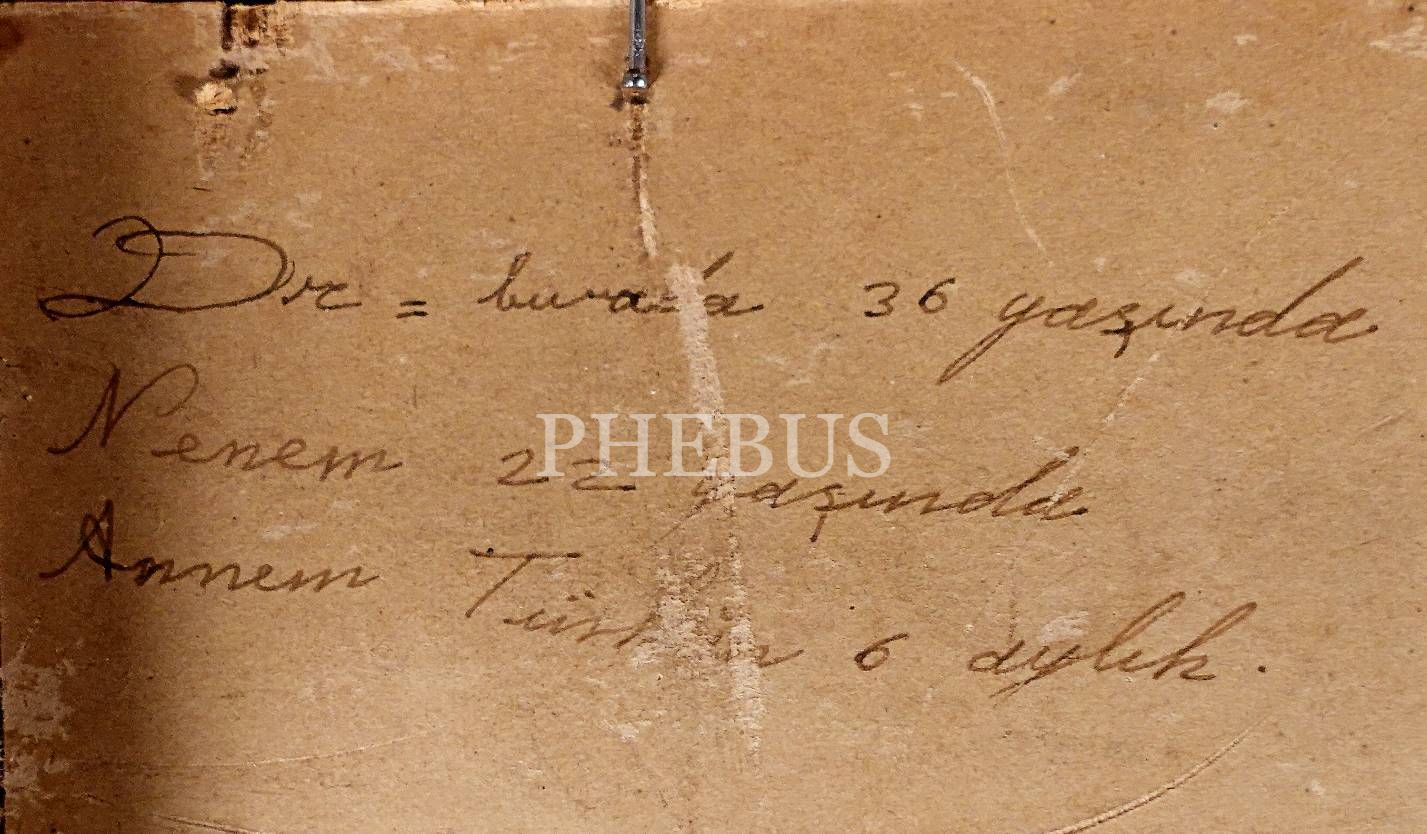 Dr = burada 36 yaşında
Nenem 22 yaşında
Annem 6 aylık.
PHEBUS